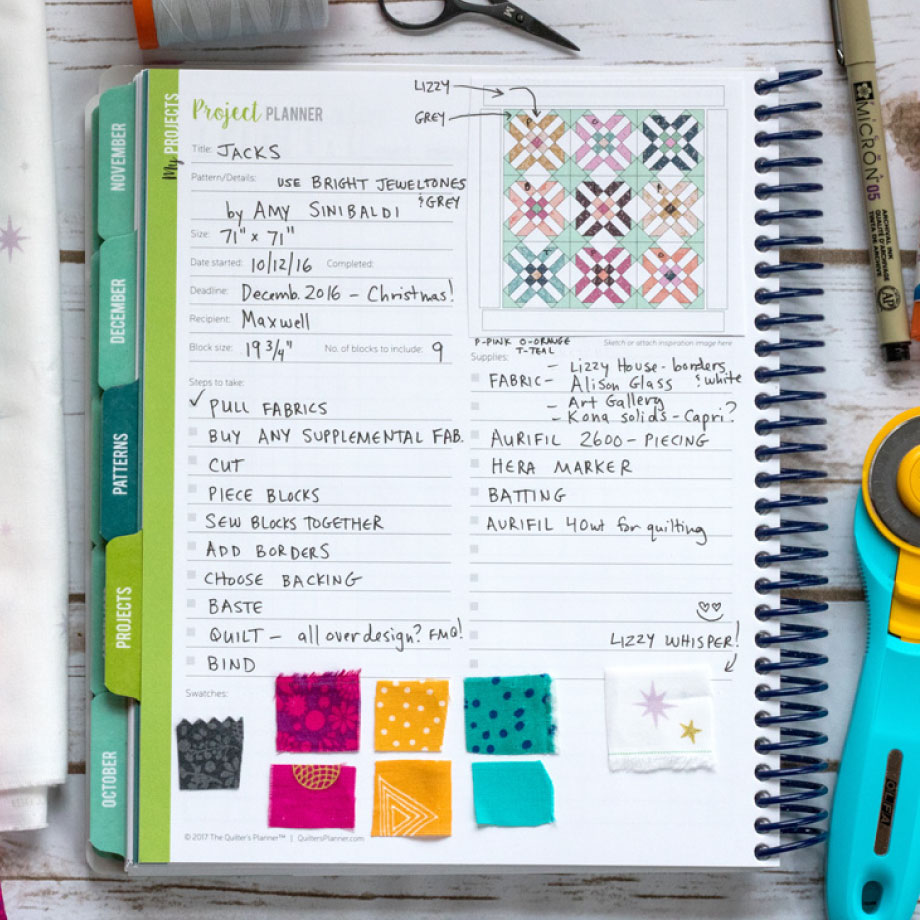 My PROJECTS
Project PLANNER
LIZZY
GREY
Title: JACKS
Pattern/Details: USE BRIGHT JEWELTONES
& GREY
by AMY SINIBALDI
Size: 71" x 71"
Date started: 10/12/16 Completed:
Deadline: Decemb. 2016 - Christmas!
Recipient: Maxwell
Block size: 19 3/4" No. of blocks to include: 9
P-PINK O-ORANGE
T-TEAL
Sketch or attach inspiration image here
Steps to take:
✓ PULL FABRICS
BUY ANY SUPPLEMENTAL FAB.
CUT
PIECE BLOCKS
SEW BLOCKS TOGETHER
ADD BORDERS
CHOOSE BACKING
BASTE
QUILT - all over design? FMQ!
BIND
Supplies:
- Lizzy House - borders
FABRIC - Alison Glass & white
- Art Gallery
- Kona solids - Capri?
AURIFIL 2600 - PIECING
HERA MARKER
BATTING
AURIFIL 40wt for quilting
LIZZY WHISPER!
Swatches:
© 2017 The Quilter's Planner™ | QuiltersPlanner.com
NOVEMBER
DECEMBER
PATTERNS
PROJECTS
OCTOBER
MICRON 05
ARCHIVAL INK
TINTA DE ARCHIVO
AP
OLFA